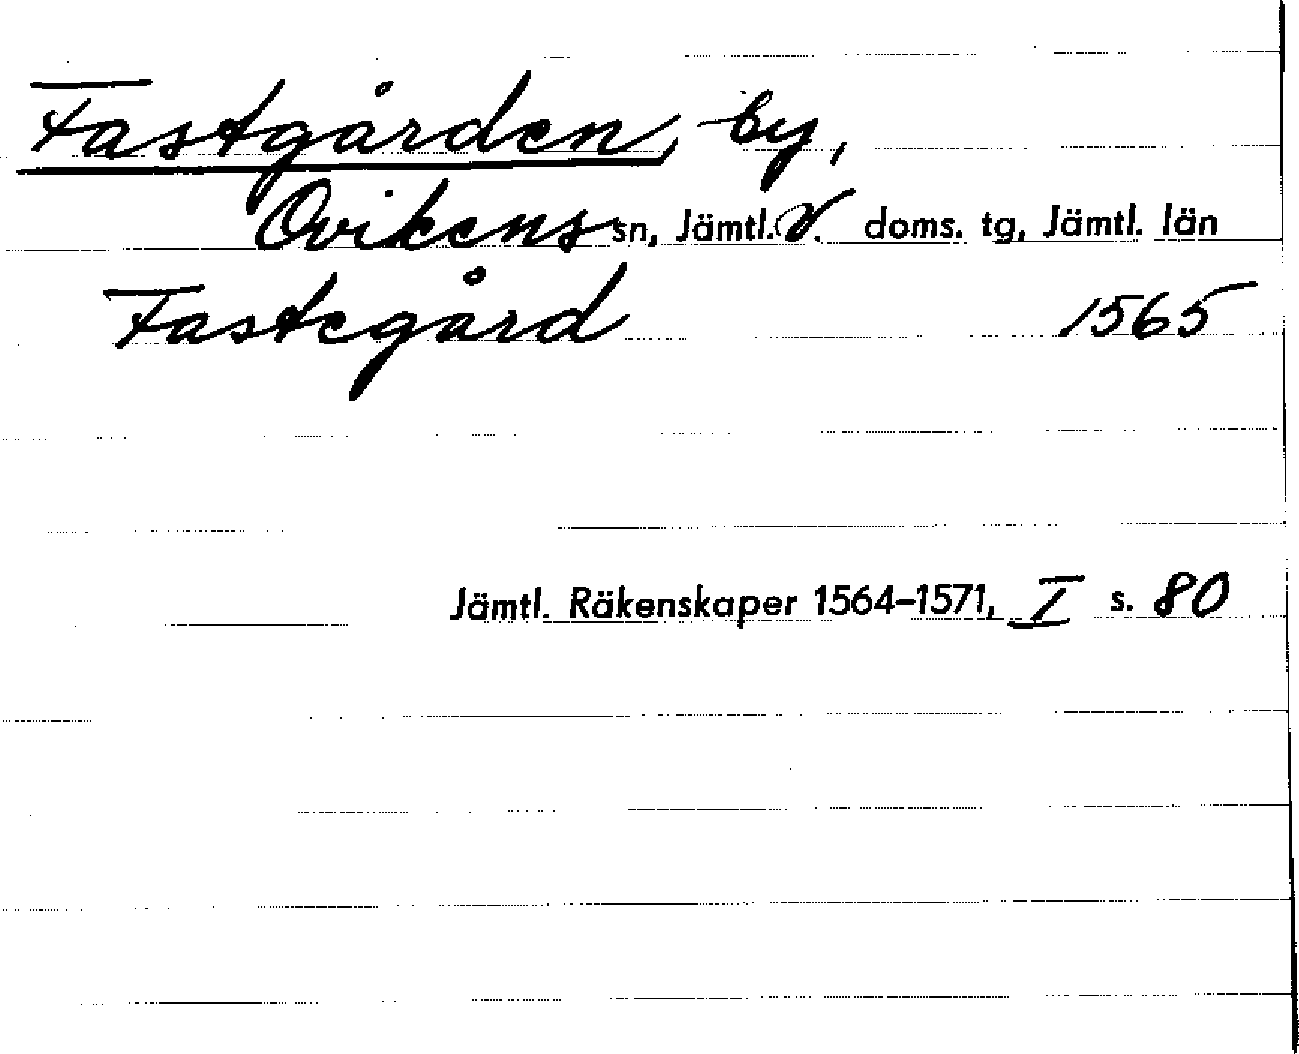 Fastgården, by,
Ovikens sn, Jämtl. V. doms. tg, Jämtl. län
Fastegård 1565
Jämtl. Räkenskaper 1564–1571, I s. 80